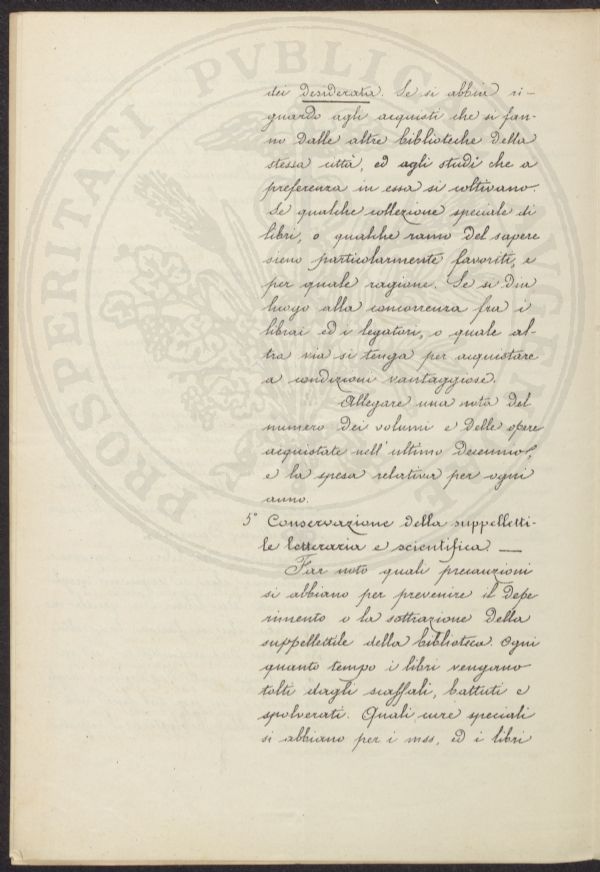 PROSPERITATI PVBLICAE AVGENDAE
dei desiderata. Se si abbia ri-
guardo agli acquisti che si fan-
no dalle altre biblioteche della
stessa città, ed agli studi che a
preferenza in essa si coltivano.
Se qualche collezione speciale di
libri, o qualche ramo del sapere
sieno particolarmente favoriti, e
per quale ragione. Se si dia
luogo alla concorrenza fra i
librai ed i legatori, o quale al-
tra via si tenga per acquistare
a condizioni vantaggiose.
Allegare una nota del
numero dei volumi e delle opere
acquistate nell'ultimo decennio,
e la spesa relativa per ogni
anno.
5° Conservazione della suppelletti-
le letteraria e scientifica. —
Far noto quali precauzioni
si abbiano per prevenire il depe
rimento o la sottrazione della
suppellettile della biblioteca. Ogni
quanto tempo i libri vengano
tolti dagli scaffali, battuti e
spolverati. Quali cure speciali
si abbiano per i mss, ed i libri